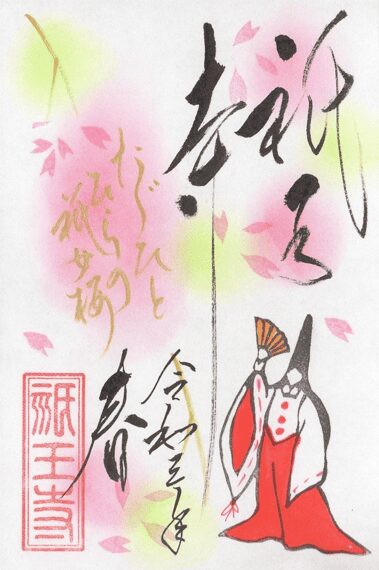 祇王
寺
たゞひと
ひらの
祇女桜
令和三年
春
祇王寺